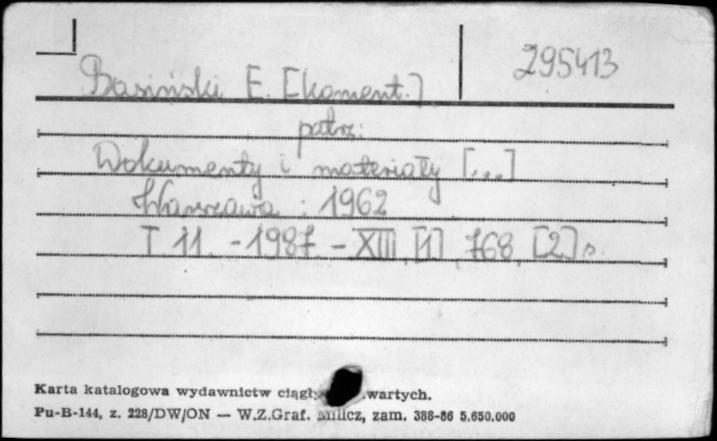 295413
Basiński E. [koment.]
patrz:
Dokumenty i materiały [...]
Warszawa : 1962
T. 11. - 1987. - XIII, [1], 768, [2] s.
Karta katalogowa wydawnictw wartych.
Pu-B-144, z. 228/DW/ON — W.Z.Graf. Milicz, zam. 388-86 5.650.000